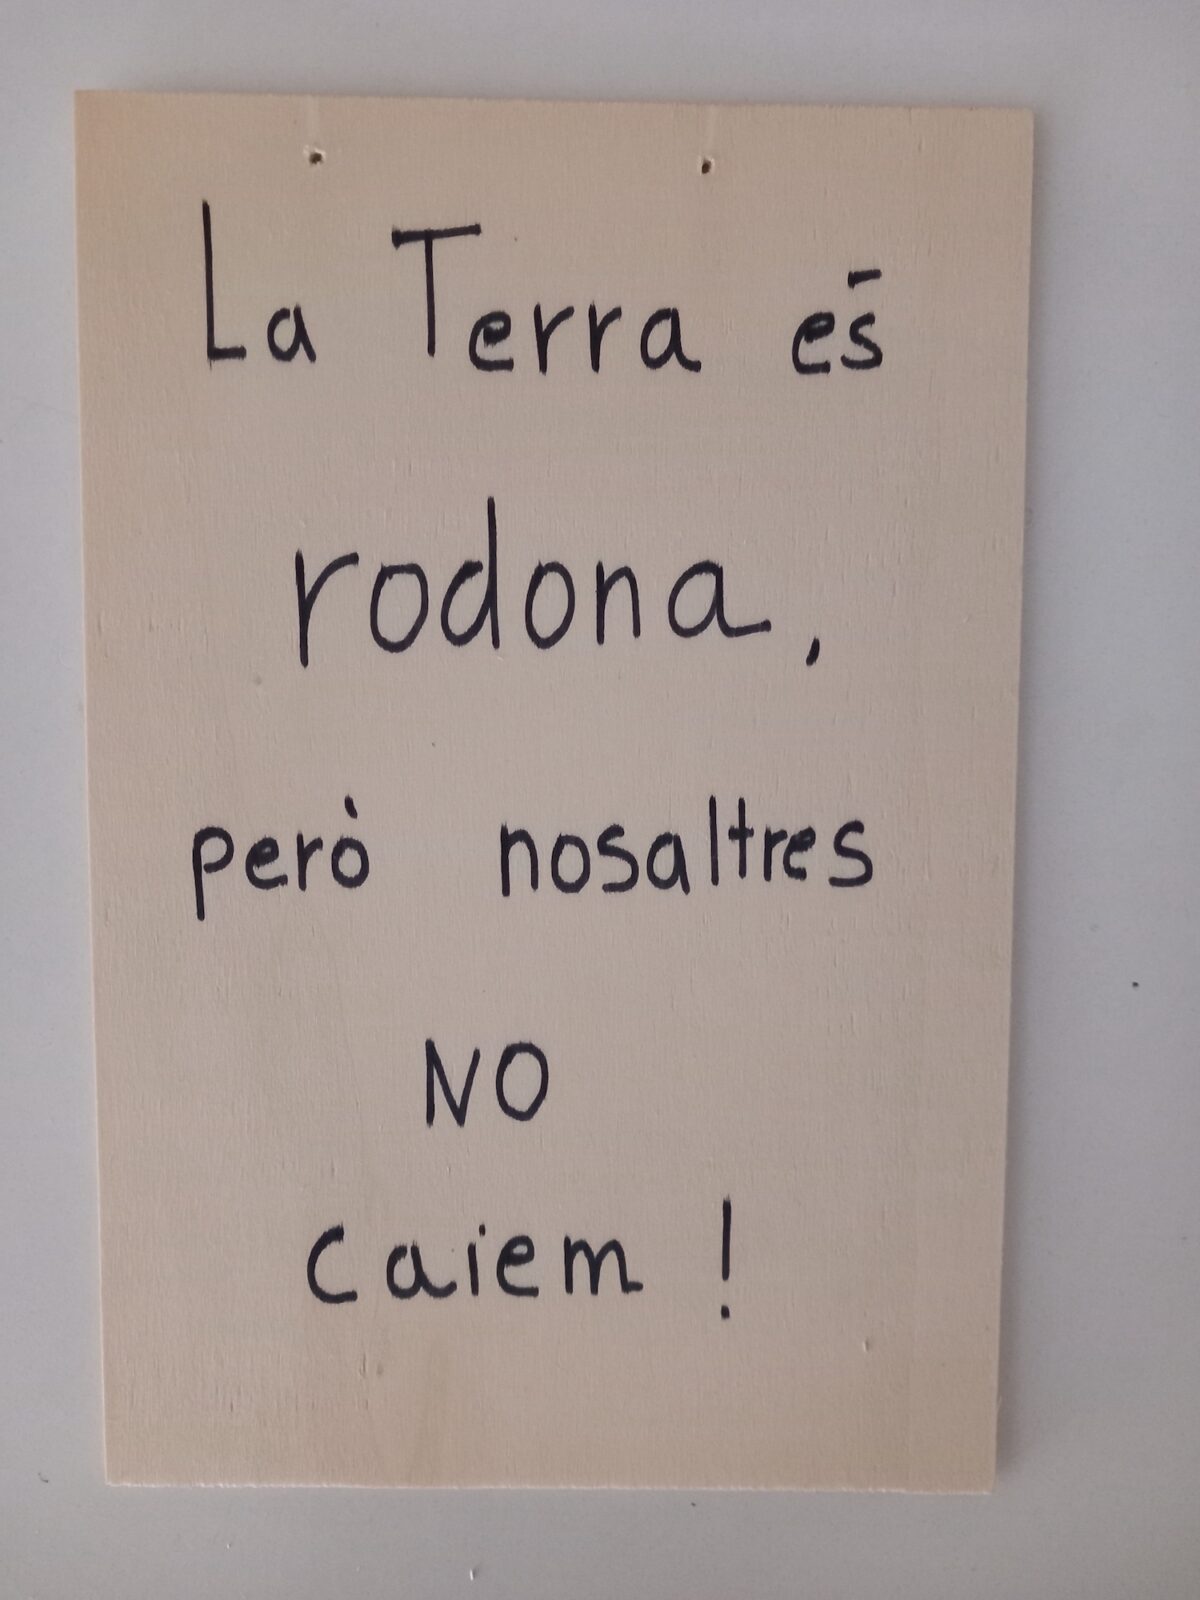 La Terra és
rodona,
però nosaltres
NO
caiem !